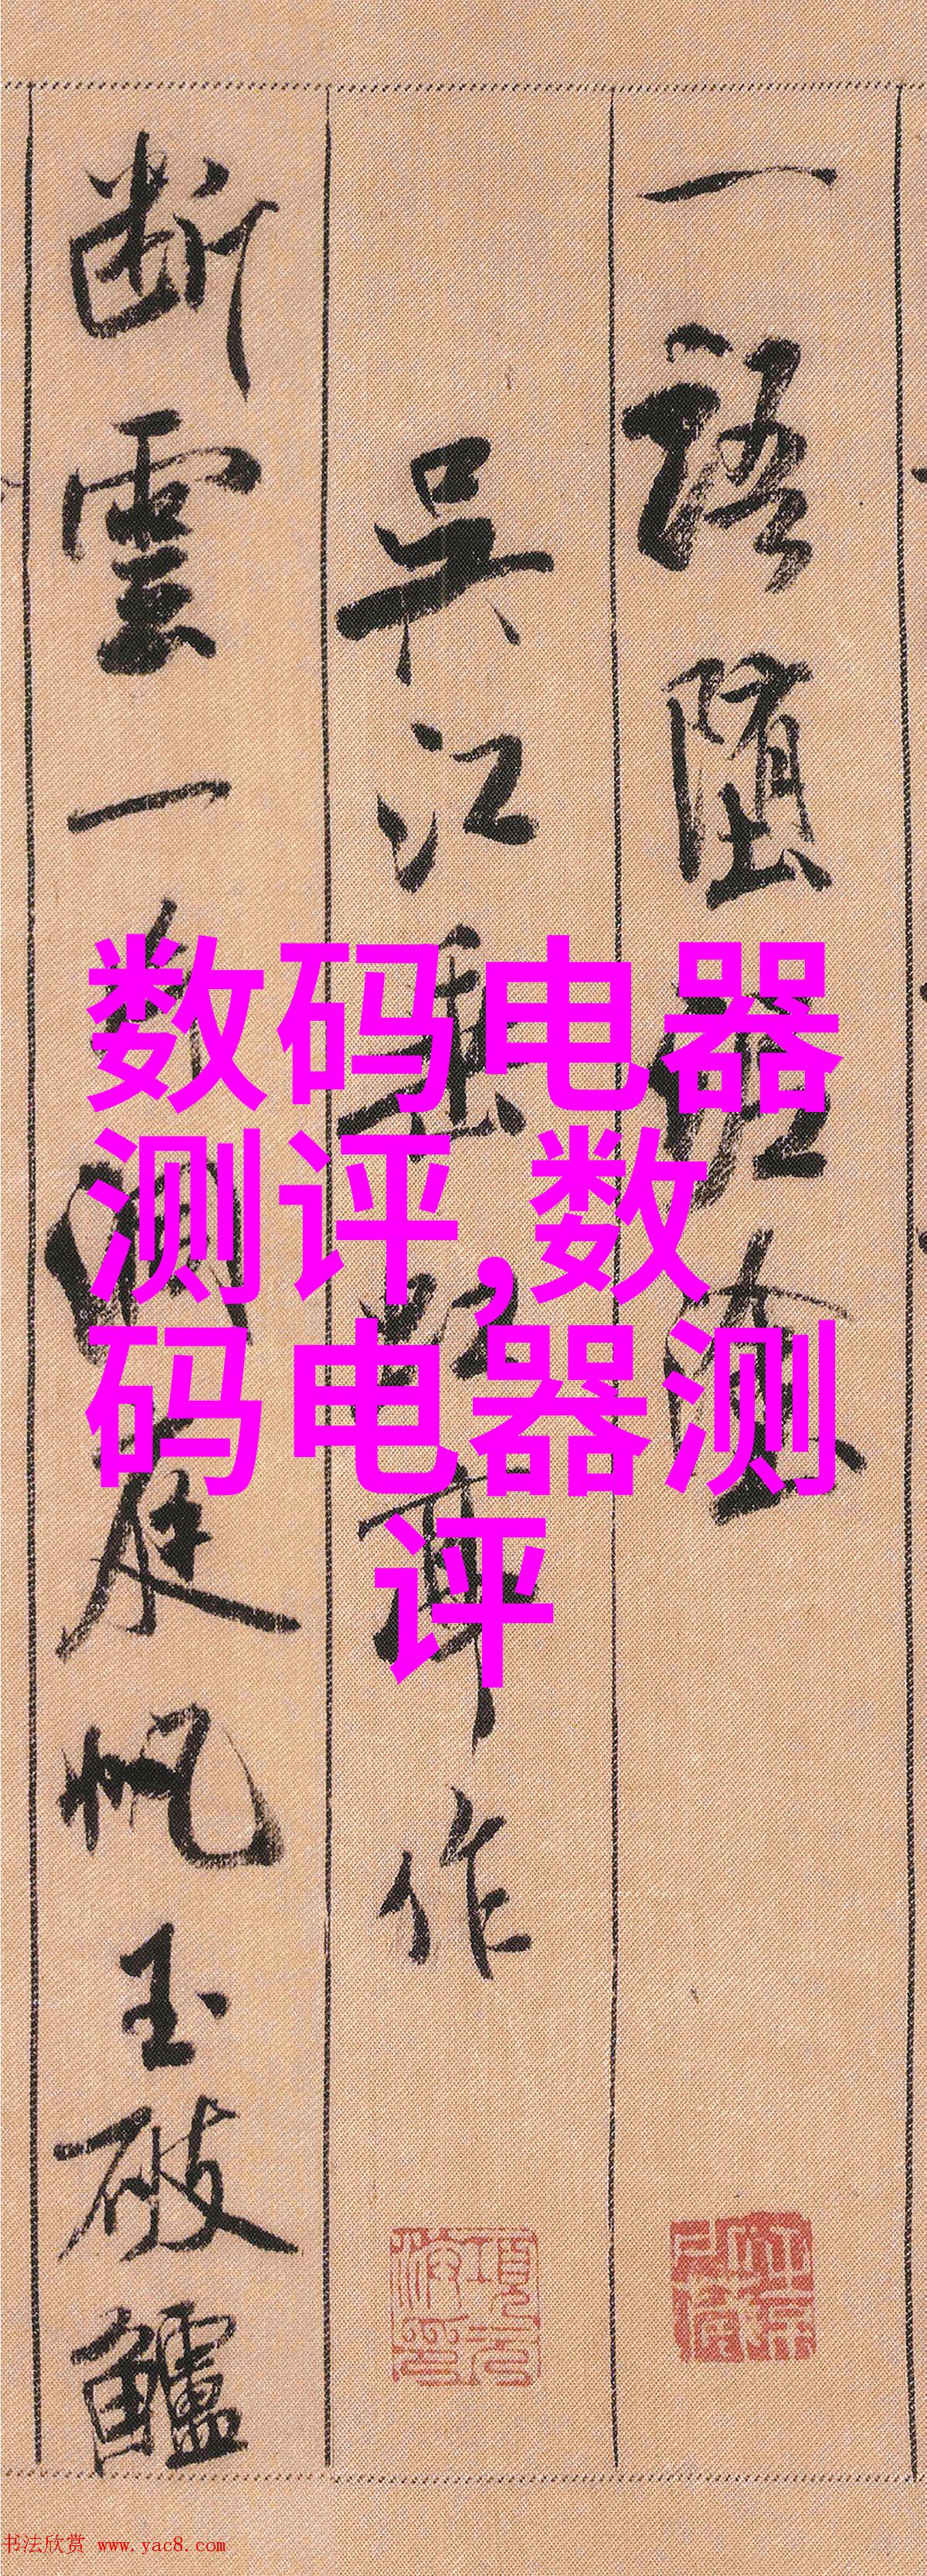 一語墮泥塗
吳江垂虹亭作
断雲一片洞庭帆玉破鱸
数码电器
测评,数
码电器测
评
书法欣赏 www.yac8.com